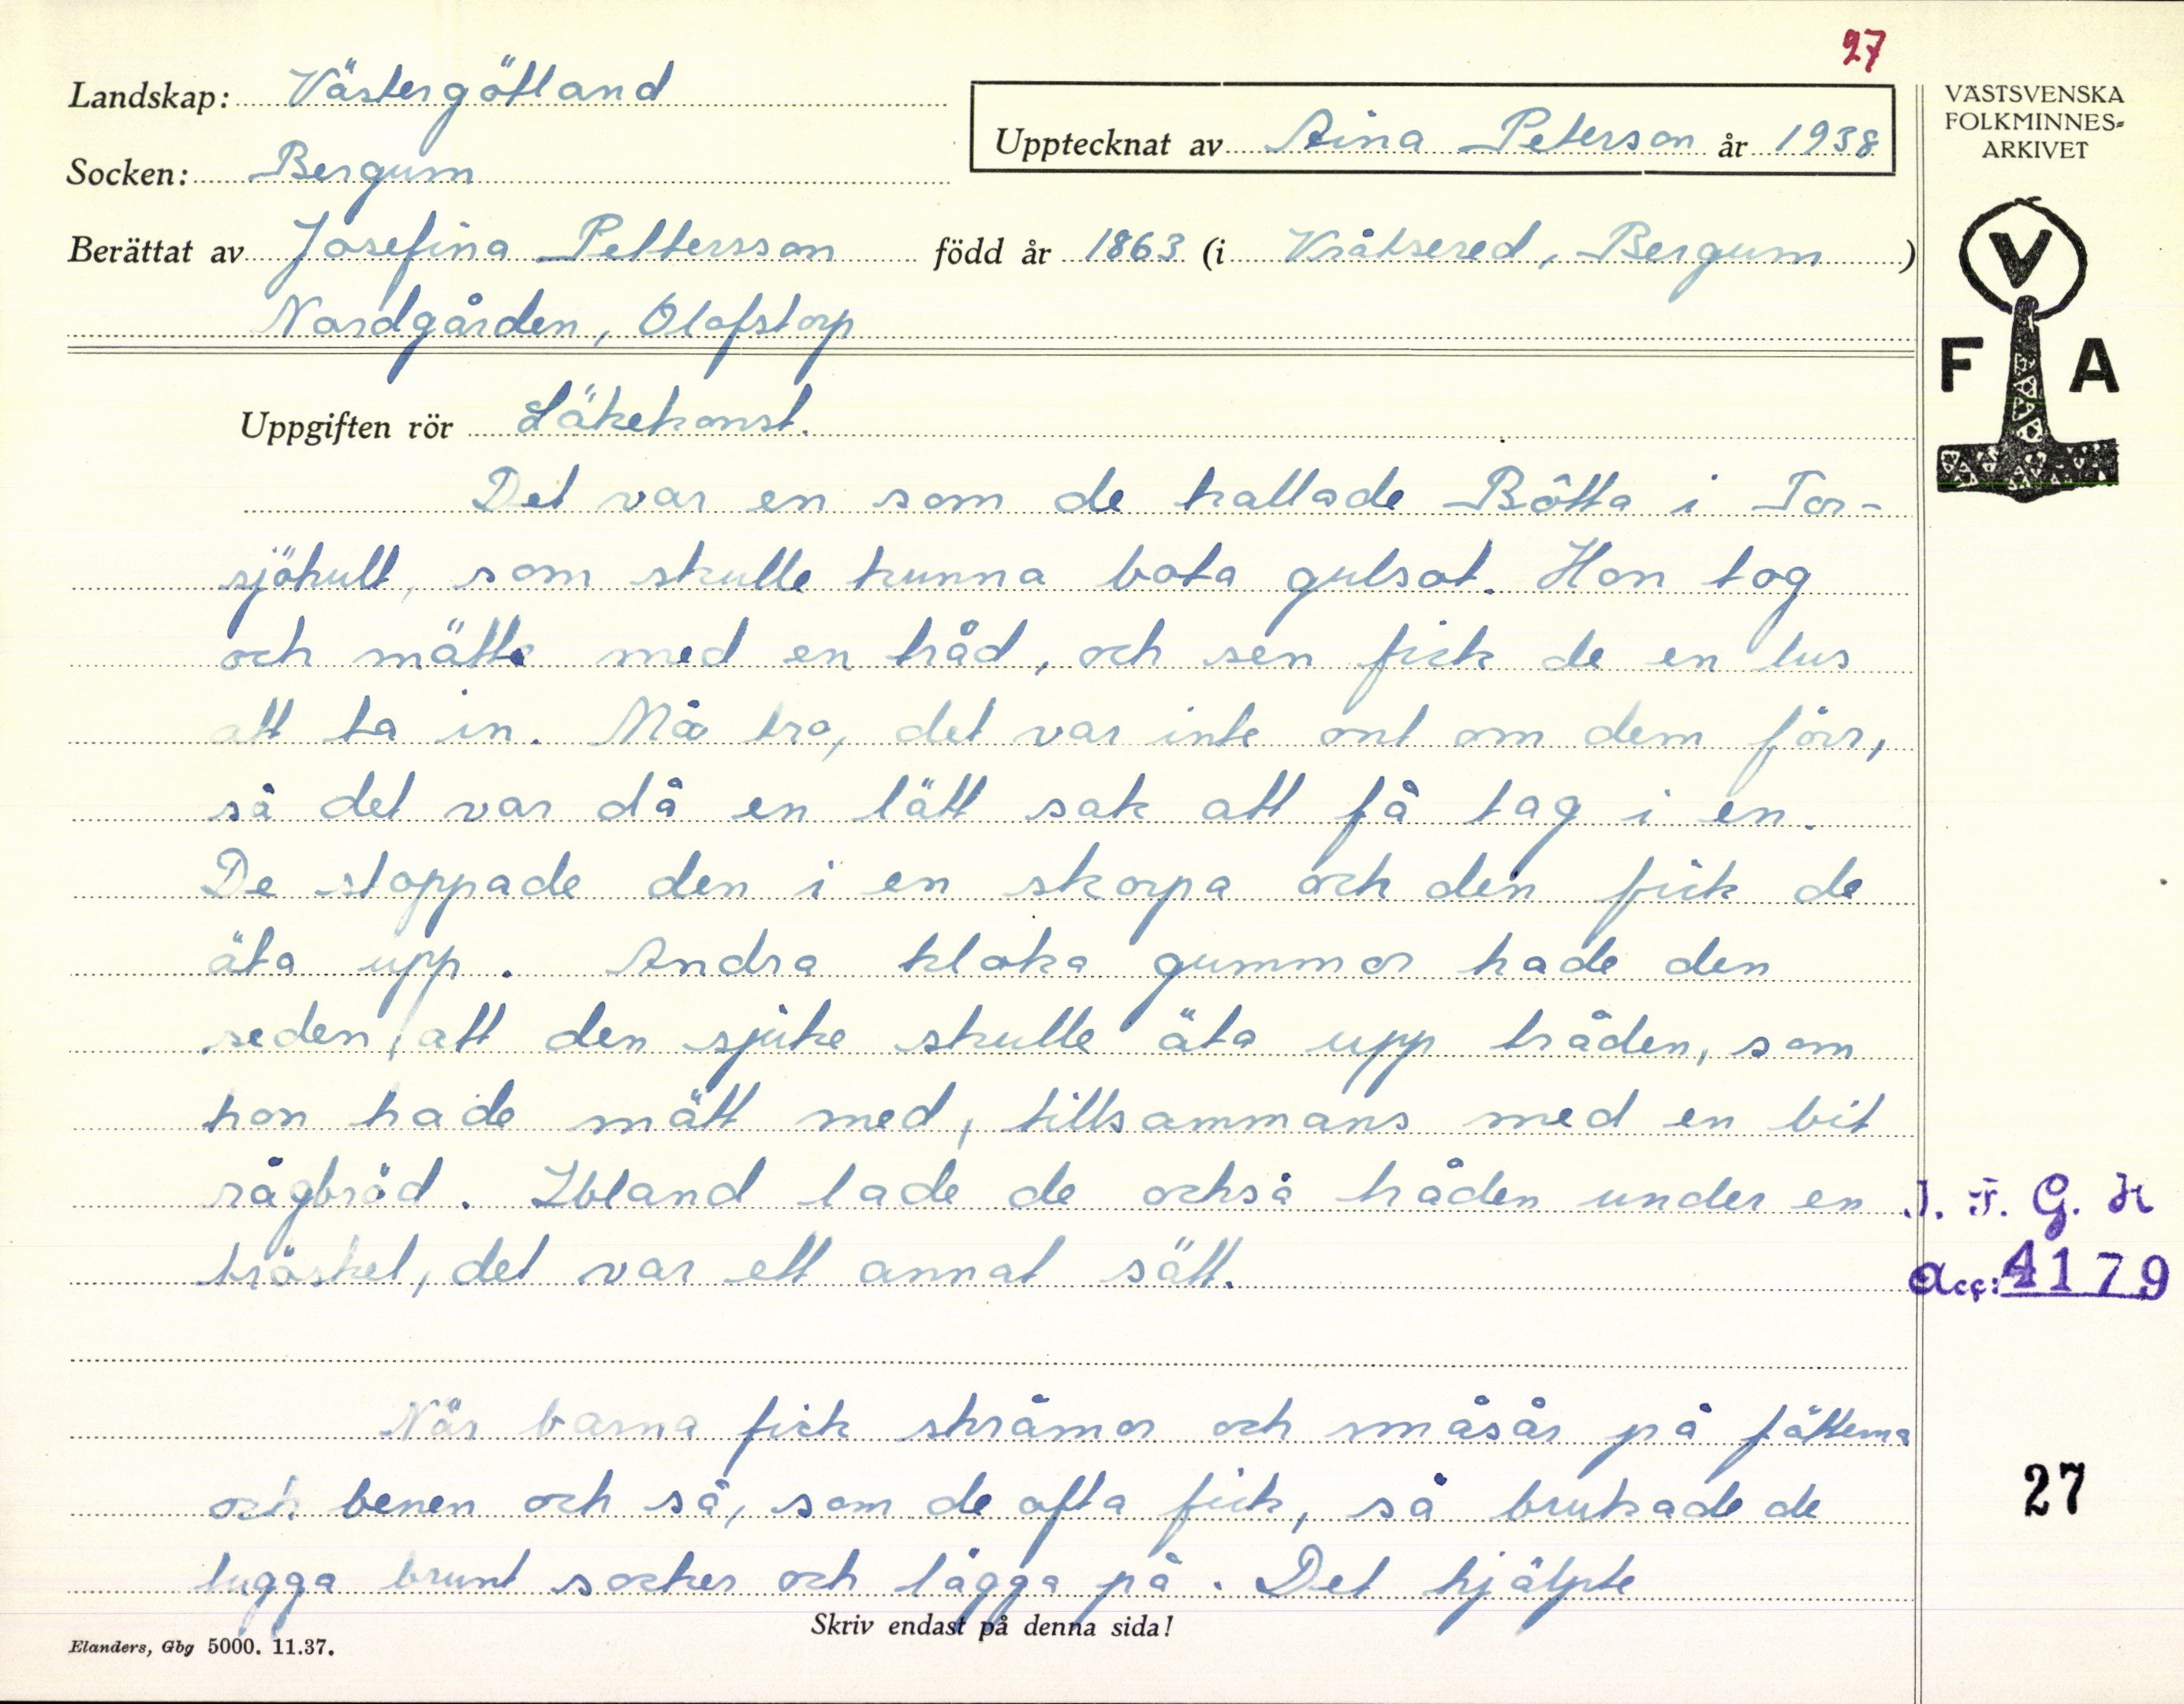 27
Landskap: Västergötland
Upptecknat av Aina Peterson år 1938
Socken: Bergum
Berättat av Josefina Pettersson född år 1863 (i Kråksered, Bergum)
Nordgården, Olofstorp
VÄSTSVENSKA
FOLKMINNES-
ARKIVET
V
F A
Uppgiften rör Läkekonst.
Det var en som de kallade Bôtta i Tor-
sjöhult, som skulle kunna bota gulsot. Hon tog
och mätte med en tråd, och sen fick de en lus
att ta in. Må tro, det var inte ont om dem förr,
så det var då en lätt sak att få tag i en.
De stoppade den i en skorpa och den fick de
äta upp. Andra kloka gummor hade den
seden, att den sjuke skulle äta upp tråden, som
hon hade mätt med, tillsammans med en bit
rågbröd. Ibland lade de också tråden under en
tröskel, det var ett annat sätt.
I. F. G. H
Acc: 4179
När barna fick skråmor och småsår på föttema
och benen och så, som de ofta fick, så brukade de
tugga brunt socker och lägga på. Det hjälpte
27
Skriv endast på denna sida!
Elanders, Gbg 5000. 11.37.